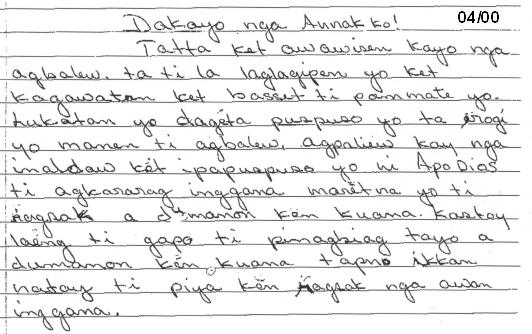 Dakayo nga Annak ko! 04/00
Tatta ket awawisen kayo nga
agbalew. ta ti la laglagipen yo ket
kagawatan ket bassit ti pammate yo.
Lukatan yo dagita puspuso yo ta irogi
yo manen ti agbalew, agpaliiw kay nga
inaldaw ket ipapuspuso yo ni Apo Dios
ti agkararag inggana mariknа yo ti
ragsak a dumanon ken kuana. Kastoy
laeng ti gapo ti pinagbiag tayo a
dumanon ken kuana tapno ikkan
natay ti piya ken ragsak nga awan
inggana.